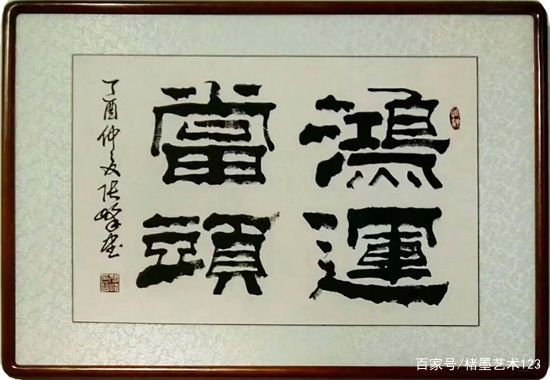 鴻運
當頭
丁酉仲夏张
百家号/楮墨艺术123